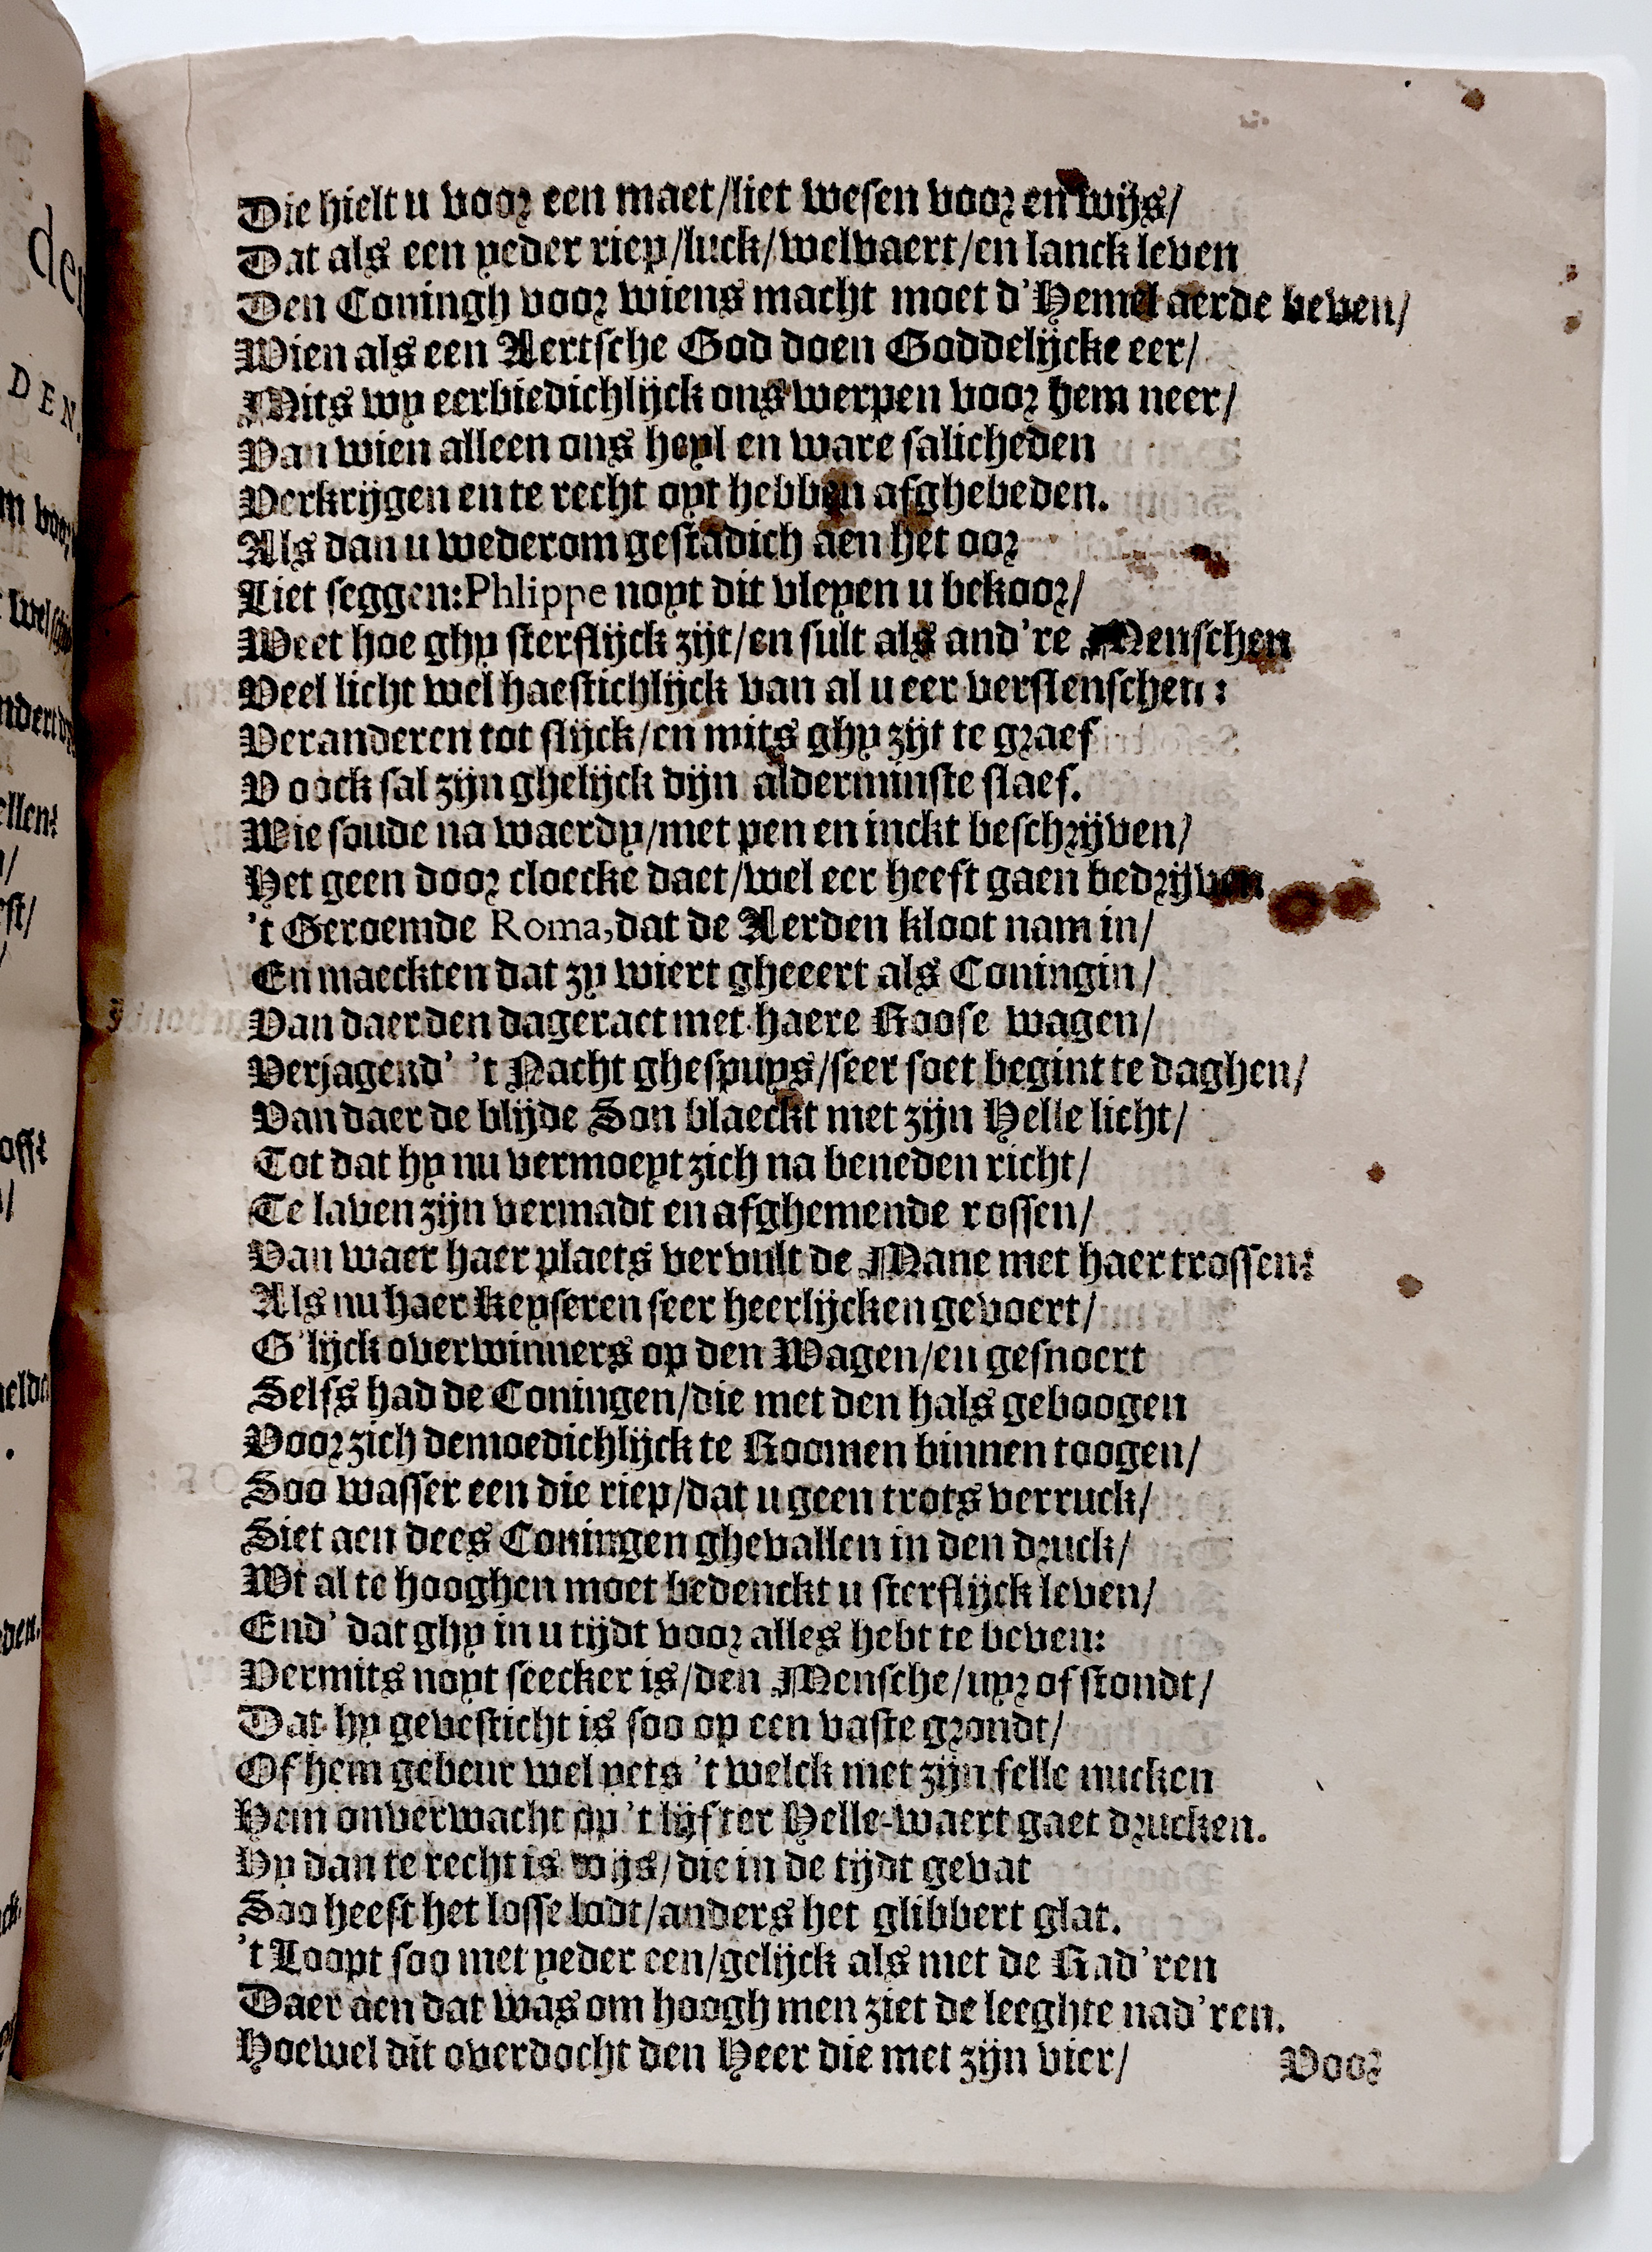 Die hielt u voor een maet/liet wesen voor en wijs/
Dat als een yeder riep/luck/welvaert/en lanck leven
Den Coningh voor wiens macht moet d'Hemel aerde beven/
Wien als een Aertsche God doen Goddelijcke eer/
Mits wy eerbiedichlijck ons werpen voor hem neer/
Van wien alleen ons heyl en ware salicheden
Verkrijgen en te recht oyt hebben afghebeden.
Als dan u wederom gestadich aen het oor
Liet seggen: Phlippe noyt dit vleyen u bekoor/
Weet hoe ghy sterflijck zijt/en sult als and're Menschen
Veel licht wel haestichlijck van al u eer verslenschen:
Veranderen tot slijck/en mits ghy zijt te graef
V oock sal zijn ghelijck dijn alderminste slaef.
Wie soude na waerdy/met pen en inckt beschrijven/
Het geen door cloecke daet/wel eer heeft gaen bedrijven
't Geroemde Roma, dat de Aerden kloot nam in/
En maeckten dat zy wiert gheeert als Coningin/
Van daer den dageraet met haere Roose wagen/
Verjagend' 't Nacht ghespuys/seer soet begint te daghen/
Van daer de blijde Son blaeckt met zijn Helle licht/
Tot dat hy nu vermoeyt zich na beneden richt/
Te laven zijn vermadt en afghemende rossen/
Van waer haer plaets vervult de Mane met haer trossen:
Als nu haer Keyseren seer heerlijcken gevoert/
G'lijck overwinners op den Wagen/en gesnoert
Selfs had de Coningen/die met den hals geboogen
Voor zich demoedichlijck te Roomen binnen toogen/
Soo wasser een die riep/dat u geen trots verruck/
Siet aen dees Coningen ghevallen in den druck/
Wt al te hooghen moet bedenckt u sterflijck leven/
End' dat ghy in u tijdt voor alles hebt te beven:
Vermits noyt seecker is/den Mensche/uyr of stondt/
Dat hy gevesticht is soo op een vaste grondt/
Of hem gebeur wel yets 't welck met zijn felle nucken
Hem onverwacht op 't lijf ter Helle-waert gaet drucken.
Hy dan te recht is wijs/die in de tijdt gevat
Soo heeft het losse lodt/anders het glibbert glat.
't Loopt soo met yeder een/gelijck als met de Rad'ren
Daer aen dat was om hoogh men ziet de leeghte nad'ren.
Hoewel dit overdocht den Heer die met zijn vier/
Voor